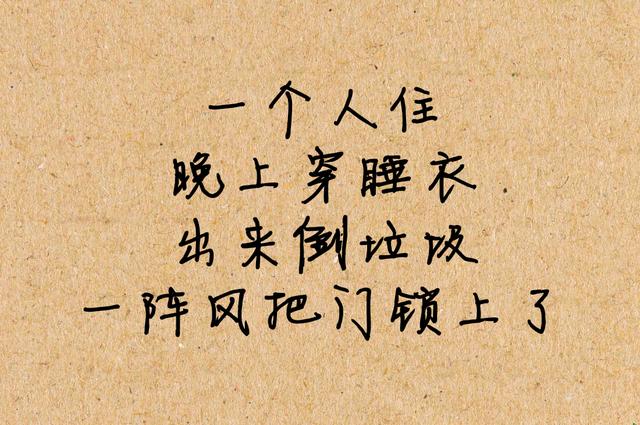 一个人住
晚上穿睡衣
出来倒垃圾
一阵风把门锁上了